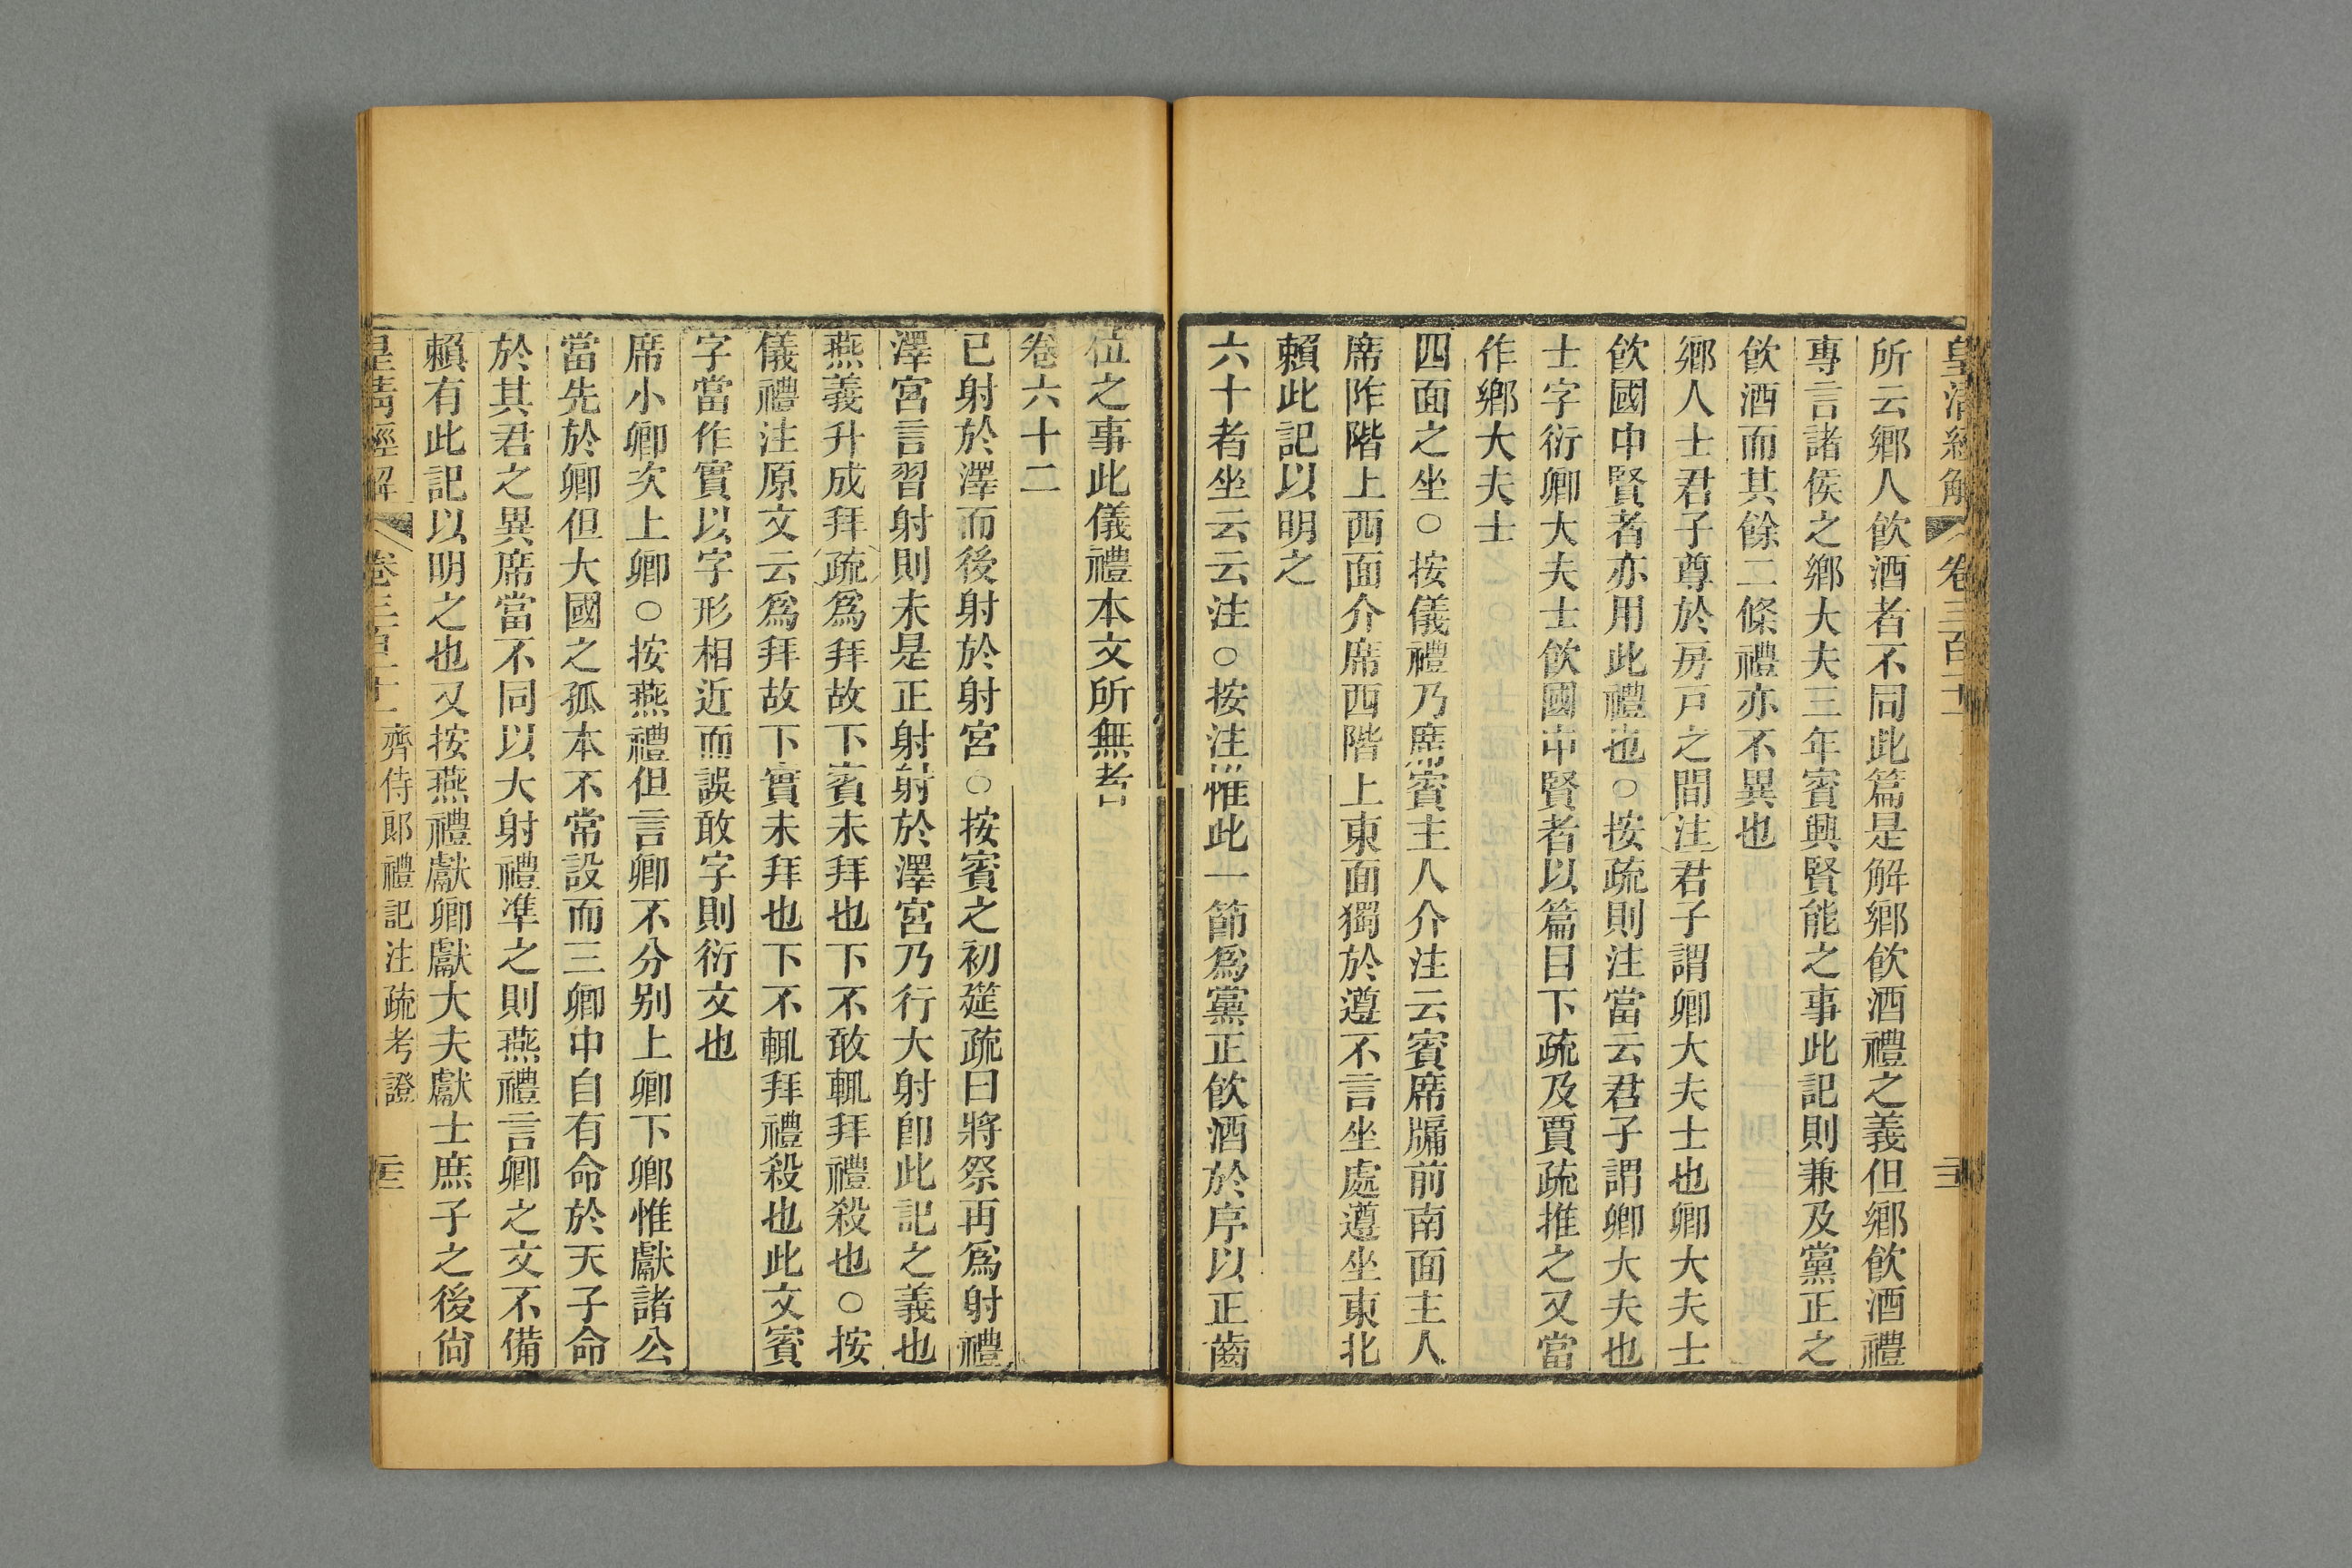 皇清經解 卷三百十一
所云鄉人飲酒者不同此篇是解鄉飲酒禮之義但鄉飲酒禮
專言諸侯之鄉大夫三年賓興賢能之事此記則兼及黨正之
飲酒而其餘二條禮亦不異也
鄉人士君子尊於房戶之間注君子謂卿大夫士也卿大夫士
飲國中賢者亦用此禮也○按疏則注當云君子謂卿大夫也
士字衍卿大夫士飲國中賢者以篇目下疏及賈疏推之又當
作鄉大夫士
四面之坐○按儀禮乃席賓主人介注云賓席牖前南面主人
席阼階上西面介席西階上東面獨於遵不言坐處遵坐東北
賴此記以明之
六十者坐云云注○按注惟此一節為黨正飲酒於序以正齒
位之事此儀禮本文所無者
卷六十二
已射於澤而後射於射宮○按賓之初筵疏曰將祭再為射禮
澤宮言習射則未是正射射於澤宮乃行大射即此記之義也
燕義升成拜疏為拜故下賓未拜也下不敢輒拜禮殺也○按
儀禮注原文云為拜故下實未拜也下不輒拜禮殺也此文賓
字當作實以字形相近而誤敢字則衍文也
席小卿次上卿○按燕禮但言卿不分別上卿下鄉惟獻諸公
當先於卿但大國之孤本不常設而三卿中自有命於天子命
於其君之異席當不同以大射禮準之則燕禮言卿之文不備
賴有此記以明之也又按燕禮獻卿獻大夫獻士庶子之後尙
皇清經解 卷三百十一 齊侍郎禮記注疏考證